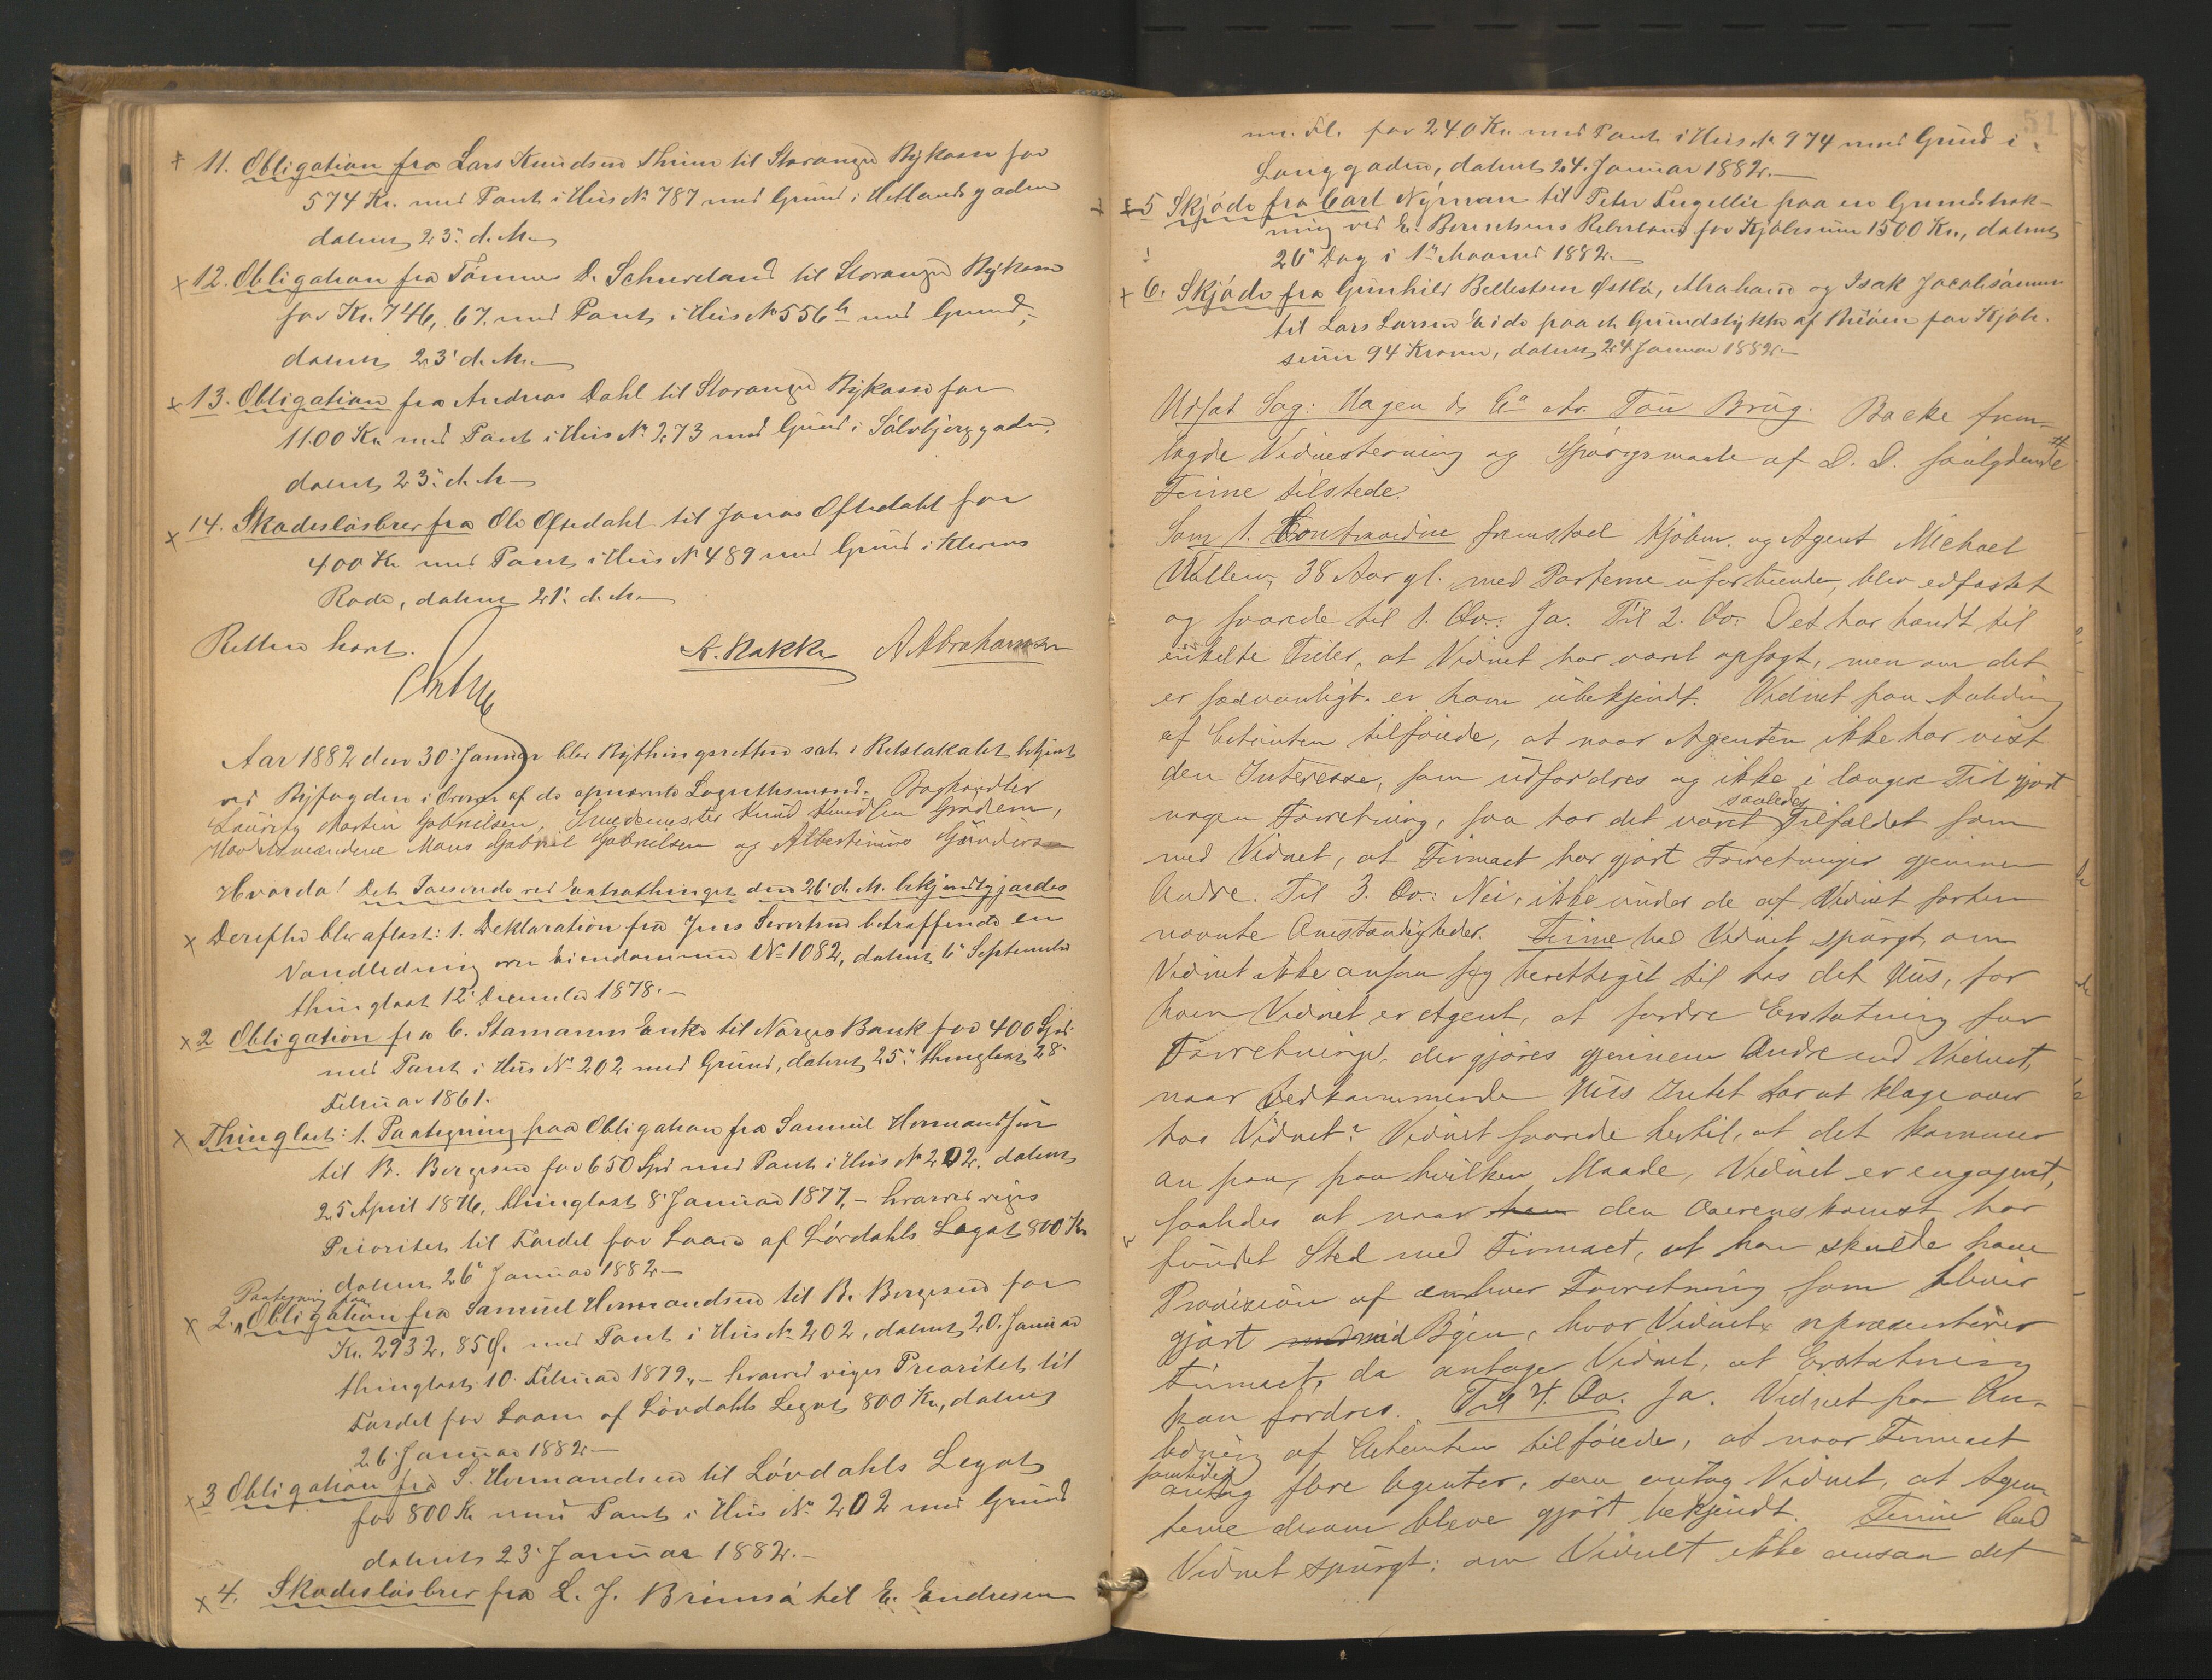 11. Obligation fra Lars Knudsen Thrine til Stavanger Bykasse for
574 Kr. med Pant i Huus No 787 med Grund i Hetlandsgaden
dateret 23' d. M.
12. Obligation fra Tønnes D. Schueland til Stavanger Bykasse
for Kr. 746, 67, med Pant i Huus No 556 b med Grund,
dateret 23' d. M.
13. Obligation fra Andreas Dahl til Stavanger Bykasse for
1100 Kr. med Pant i Huus No 273 med Grund i Sølvbjerggaden,
dateret 23' d. M.
14. Skadesløsbrev fra Ole Oftedahl til Jonas Oftedahl for
400 Kr. med Pant i Huus No 489 med Grund i
Rode, dateret 21' d. M.
Retten hævet.
A. Bakke A Abrahamsen
Aar 1882 den 30' Januar blev Bythingsretten sat i Retslokalet betjent
ved Byfogden i Overvær af de opnævnte Laugrettesmænd. Boghandler
Lauritz Martin Gabrielsen, Smedemester Knud Knudsen Gradem,
Handelsmændene Maus Gabriel Gabrielsen og Albertinius Gundersen
Hvorda! Det Passerede ved Extrathinget den 26' d. M. bekjendtgjordes
Derefter blev aflæst: 1. Deklaration fra Jens Sivertsen betræffende en
Vandledning over Eiendommen No 1082, dateret 6' September
thinglæst 12' December 1878.
2 Obligation fra C. Stamanns Enke til Norges Bank for 400 Spd.
med Pant i Huus No 202 med Grund, dateret 25' thinglæst 28'
Februar 1861.
Thinglæst: 1. Paategning paa Obligation fra Samuel Hermandsen
til B. Bergesen for 650 Spd med Pant i Huus No 202, dateret
25 April 1876, thinglæst 8' Januar 1877, - hvorved viges
Prioritet til Fordel for Laan af Løvdahls Legat 800 Kr
dateret 26' Januar 1882
Paategning paa
2. Obligation fra Samuel Hermandsen til B. Bergesen for
Kr. 2932, 85 Ø. med Pant i Huus No 202, dateret 20. Januar
thinglæst 10. Februar 1879, - hvorved viges Prioritet til
Fordel for Laan af Løvdahls Legat 800 Kr., dateret
26. Januar 1882
3 Obligation fra S. Hermandsen til Løvdahls Legat
for 800 Kr med Pant i Huus No 202 med Grund
dateret 23' Januar 1882.
4. Skadesløsbrev fra L. J. Brimsø til E. Endresen
51
m. Fl. for 240 Kr. med Pant i Huus No 974 med Grund i
Langgaden, dateret 24. Januar 1882.
5 Skjøde fra Carl Nyman til Peter Engellie paa en Grundstræk-
ning ved E. Berentsens Reberbane for Kjøbesum 1500 Kr., dateret
26' Dag i 1' Maaned 1882.
6. Skjøde fra Gunhild Bellestsen Østbø, Abraham og Isak Jacobsønner
til Lars Larsen Eide paa et Grundstykke af for Kjøb.
sum 94 Kroner, dateret 24' Januar 1882
Udsat Sag: Hagen & Co ctr. Tou Brug. Backe frem-
lagde Vidnestevning og Spørgsmaale af D. D. saalydende
Feine tilstede.
Som 1. Contravidne fremstod Kjøbm. og Agent Michael
Wallem, 38 Aar gl. med Parterne uforbunden, blev edfæstet
og svarede til 1. Qv.: Ja. Til 2. Qv. Det har hændt til
enkelte Tider, at Vidnet har været opsagt, men om det
er sædvanligt er ham ubekjendt. Vidnet paa Anledning
af Citanten tilføiede, at naar Agenten ikke har vist
den Interesse, som udfordres og ikke i længere Tid gjort
nogen Forretning, saa har det været saaledes Tilfældet som
med Vidnet, at Firmaet har gjort Forretninger gjennem
Andre. Til 3. Qv.: Nei, ikke under de af Vidnet foran
nævnte Omstændigheder. Feine bad Vidnet spurgt, om
Vidnet ikke ansaa sig berettiget til hos det Huus, for
hvem Vidnet er Agent, at fordre Erstatning for
Forretninger, der gjøres gjennem Andre end Vidnet,
naar vedkommende Huus Intet har at klage over
hos Vidnet? Vidnet svarede hertil, at det kommer
an paa, paa hvilken Maade, Vidnet er engageret,
saaledes at naar den Overenskomst har
fundet Sted med Firmaet, at han skulde have
Provision af enhver Forretning som bliver
gjort ved Byen, hvor Vidnet repræsenterer
Firmaet, da antager Vidnet, at Erstatning
kan fordres. Til 4. Qv. Ja. Vidnet paa An-
ledning af Citanten tilføiede, at naar Firmaet
samtidig
antog flere Agenter, saa antog Vidnet, at Agen-
terne derom bleve gjort bekjendt. Feine bad
Vidnet spurgt: om Vidnet ikke ansaa det